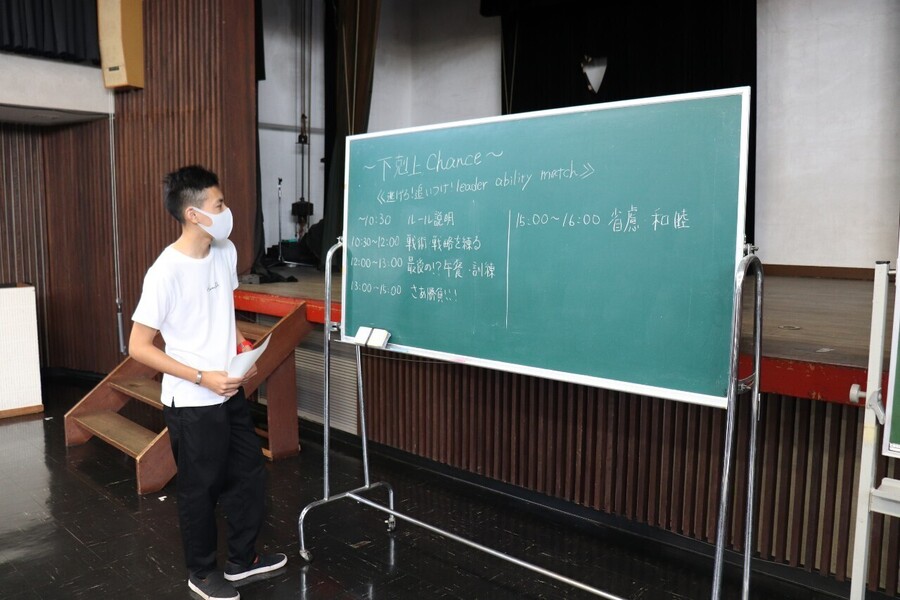 ～下剋上Chance～
《逃げろ!追いつけ!leader ability match》
~10:30 ルール説明
10:30~12:00 戦術、戦略を練る
12:00~13:00 最後の!?午餐・訓練
13:00~15:00 さあ勝負だ!
15:00~16:00 省慮 和睦